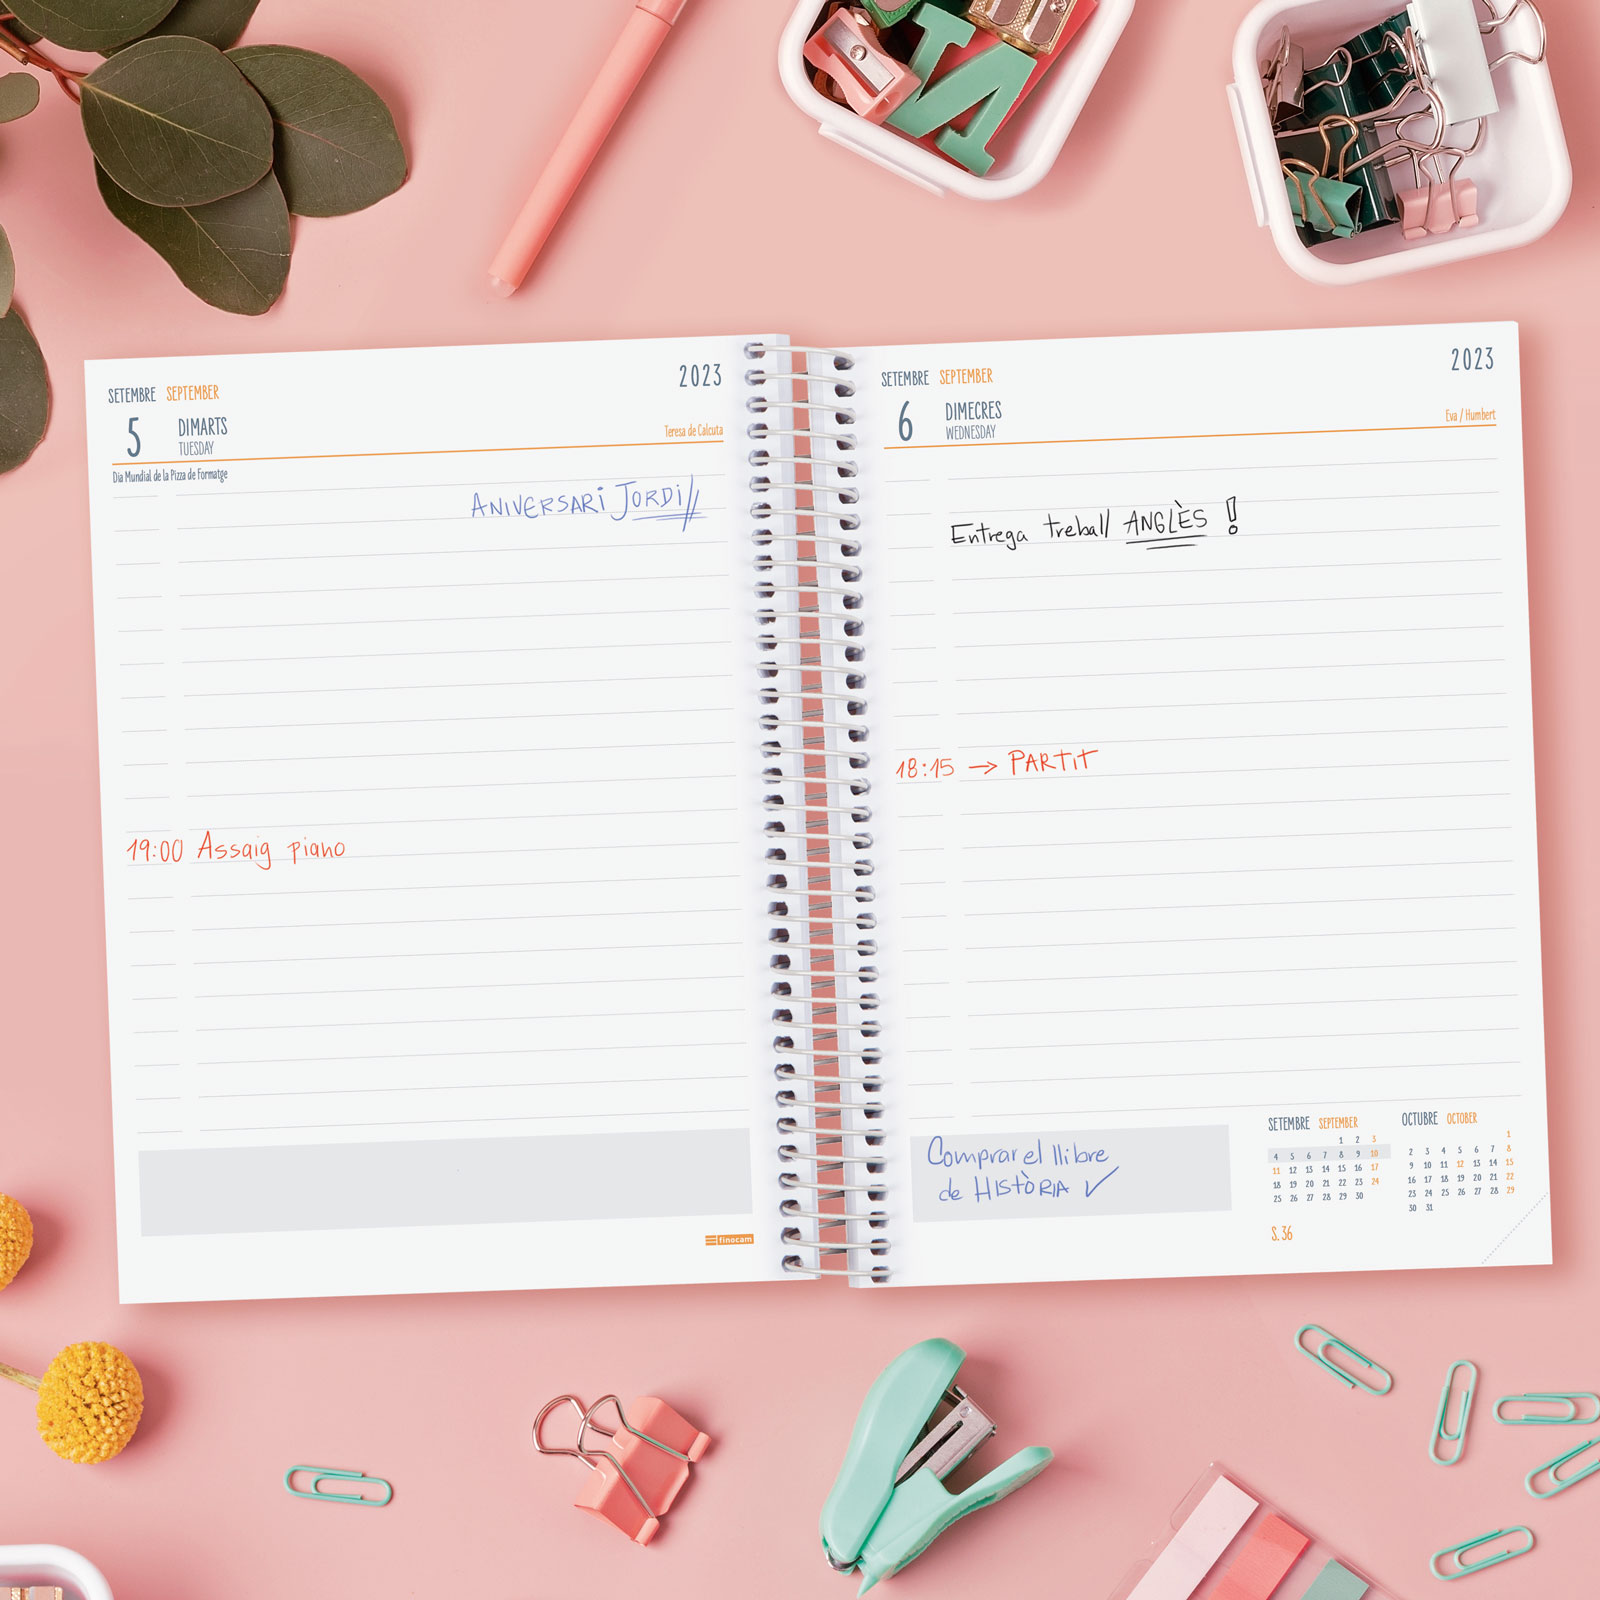 SETEMBRE SEPTEMBER 2023
5 DIMARTS
TUESDAY
Teresa de Calcuta
Dia Mundial de la Pizza de Formatge
ANIVERSARI JORDI
19:00 Assaig piano
finocam
SETEMBRE SEPTEMBER 2023
6 DIMECRES
WEDNESDAY
Eva / Humbert
Entrega treball ANGLÈS !
18:15 → PARTIT
Comprar el llibre
de HISTÒRIA ✓
SETEMBRE SEPTEMBER
1 2 3
4 5 6 7 8 9 10
11 12 13 14 15 16 17
18 19 20 21 22 23 24
25 26 27 28 29 30
OCTUBRE OCTOBER
1
2 3 4 5 6 7 8
9 10 11 12 13 14 15
16 17 18 19 20 21 22
23 24 25 26 27 28 29
30 31
S. 36